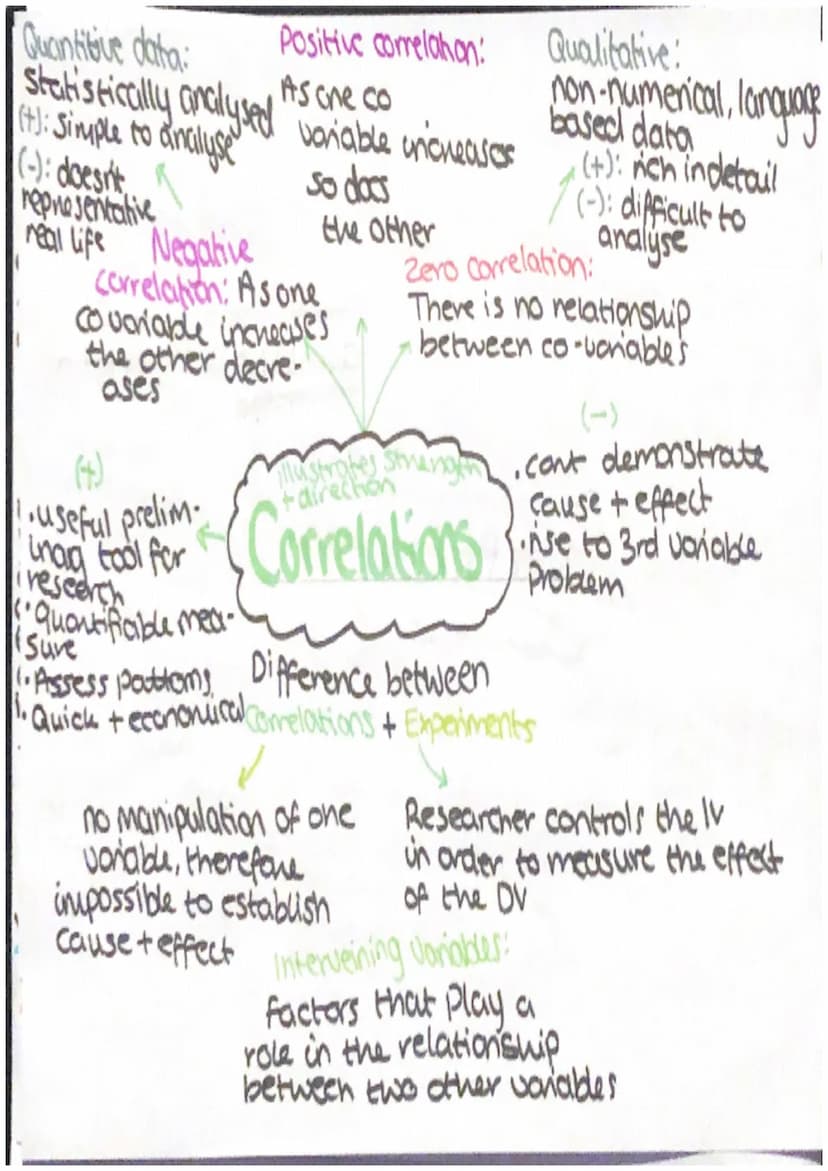 Quantitive data:
statistically analysed
(+): simple to analyse
(-): doesn't
representative
real life
Positive correlation:
As one co
variable increases
so does
the other
Qualitative:
non-numerical, language
based data
(+): rich in detail
(-): difficult to
analyse
Negative
correlation: As one
covariable increases
the other decre-
ases
Zero correlation:
There is no relationship
between co-variables
(+)
·useful prelim-
inary tool for
research
·Quantifiable mea-
sure
·Assess patterns
·Quick + economical
illustrates strength
+ direction
Correlations
(-)
·cant demonstrate
cause + effect
·rise to 3rd variable
problem
Difference between
Correlations + Experiments
no manipulation of one
variable, therefore
impossible to establish
cause + effect
Researcher controls the IV
in order to measure the effect
of the DV
Interveining variables:
factors that play a
role in the relationship
between two other variables